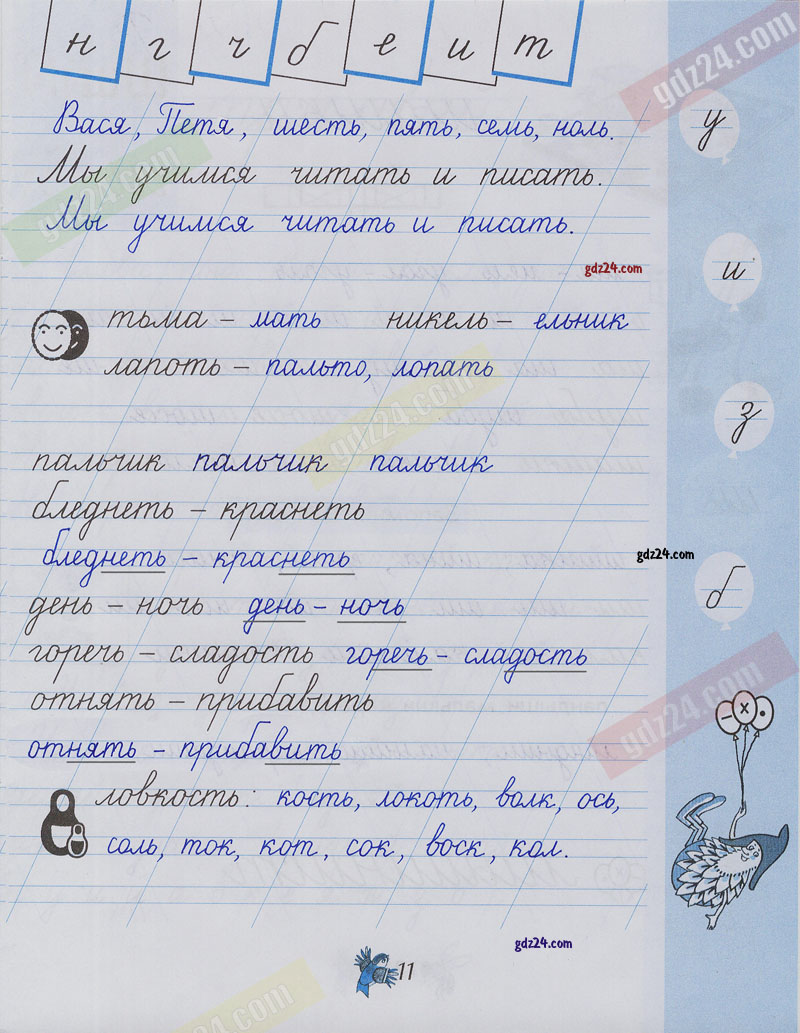 н г ч б е и т
gdz24.com
у
Вася, Петя, шесть, пять, семь, ноль.
Мы учимся читать и писать.
gdz24.com
Мы учимся читать и писать.
gdz24.com
и
тьма – мать никель – ельник
лапоть – пальто, лопать
gdz24.com
з
пальчик пальчик пальчик
бледнеть – краснеть
бледнеть – краснеть
gdz24.com
б
день – ночь день – ночь
горечь – сладость горечь – сладость
отнять – прибавить
gdz24.com
– х •
отнять – прибавить
ловкость: кость, локоть, волк, ось,
соль, ток, кот, сок, воск, кол.
gdz24.com
11
gdz24.com